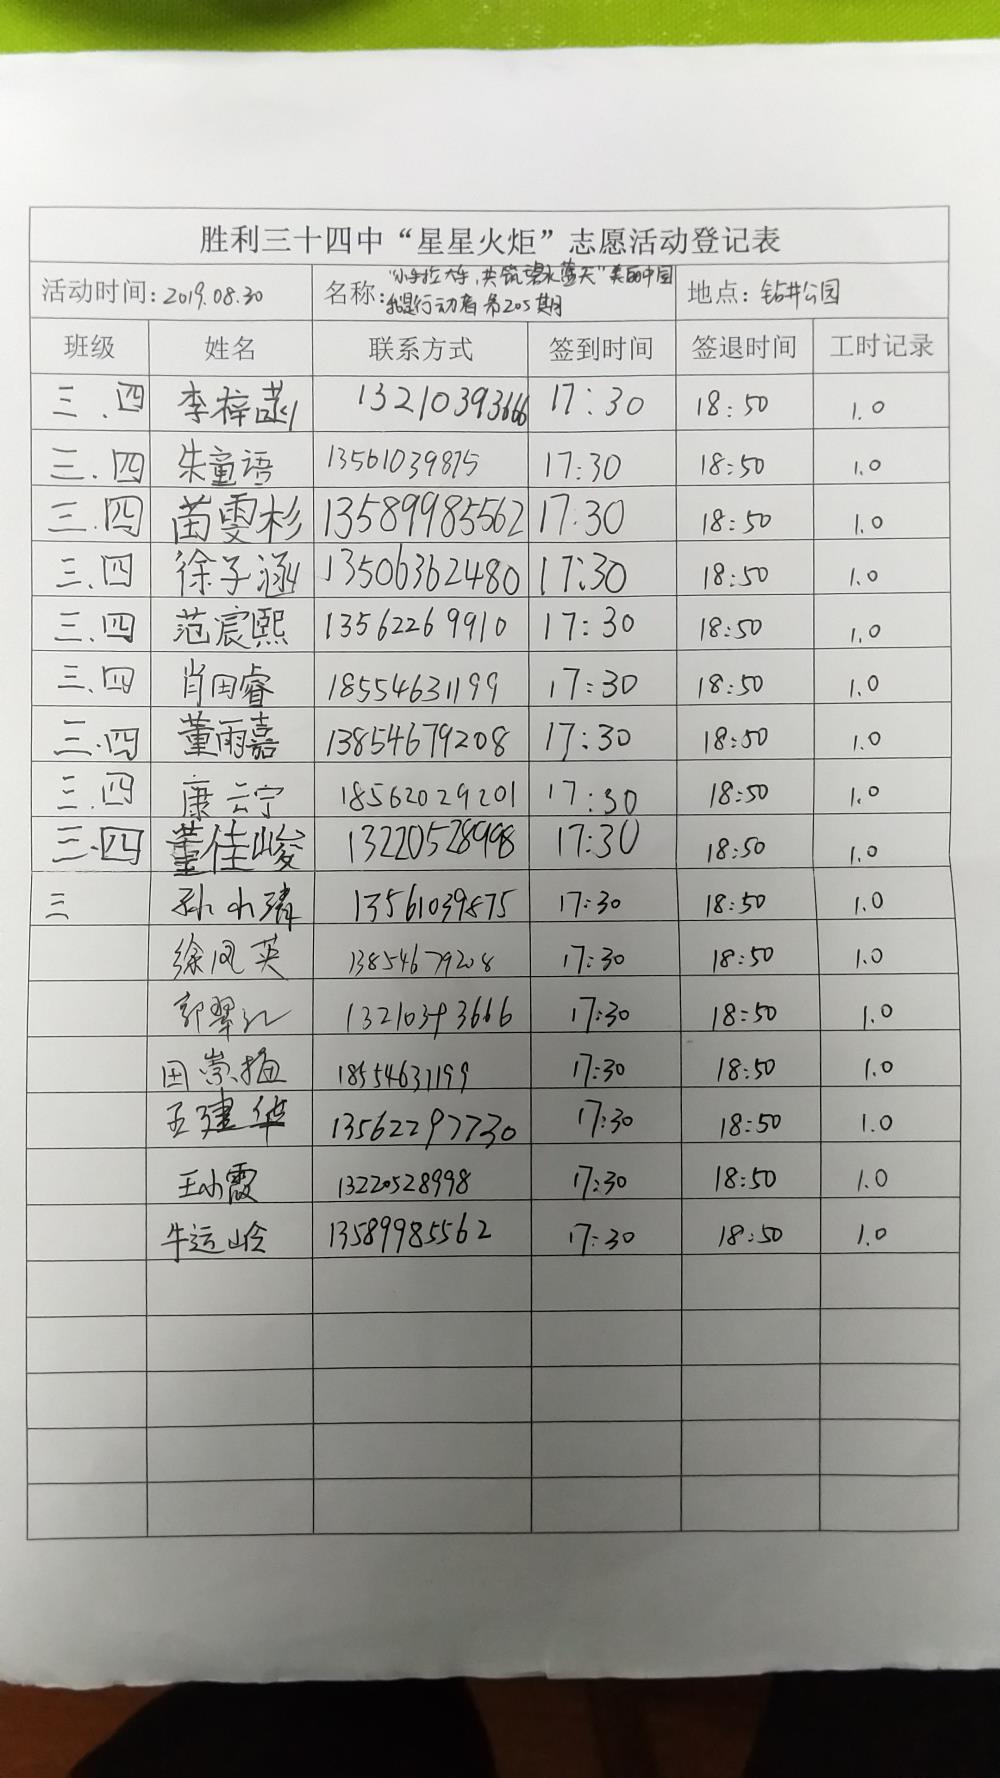 胜利三十四中“星星火炬”志愿活动登记表
活动时间:2019.08.30 名称:“小手拉大手,共筑碧水蓝天”美丽中国 地点:钻井公园
我是行动者 第205期
班级 姓名 联系方式 签到时间 签退时间 工时记录
三.四 李梓菡 13210393666 17:30 18:50 1.0
三.四 朱童语 13561039875 17:30 18:50 1.0
三.四 苗雯杉 13589985562 17:30 18:50 1.0
三.四 徐子涵 13506362480 17:30 18:50 1.0
三.四 范宸熙 13562269910 17:30 18:50 1.0
三.四 肖田睿 18554631199 17:30 18:50 1.0
三.四 董雨嘉 13854679208 17:30 18:50 1.0
三.四 康云宁 18562029201 17:30 18:50 1.0
三.四 董佳峻 13220528998 17:30 18:50 1.0
三 孙小清 13561039875 17:30 18:50 1.0
徐凤英 13854679208 17:30 18:50 1.0
郭翠 13210393666 17:30 18:50 1.0
田崇梅 18554631199 17:30 18:50 1.0
孟建华 13562297730 17:30 18:50 1.0
王小霞 13220528998 17:30 18:50 1.0
牛运岭 13589985562 17:30 18:50 1.0